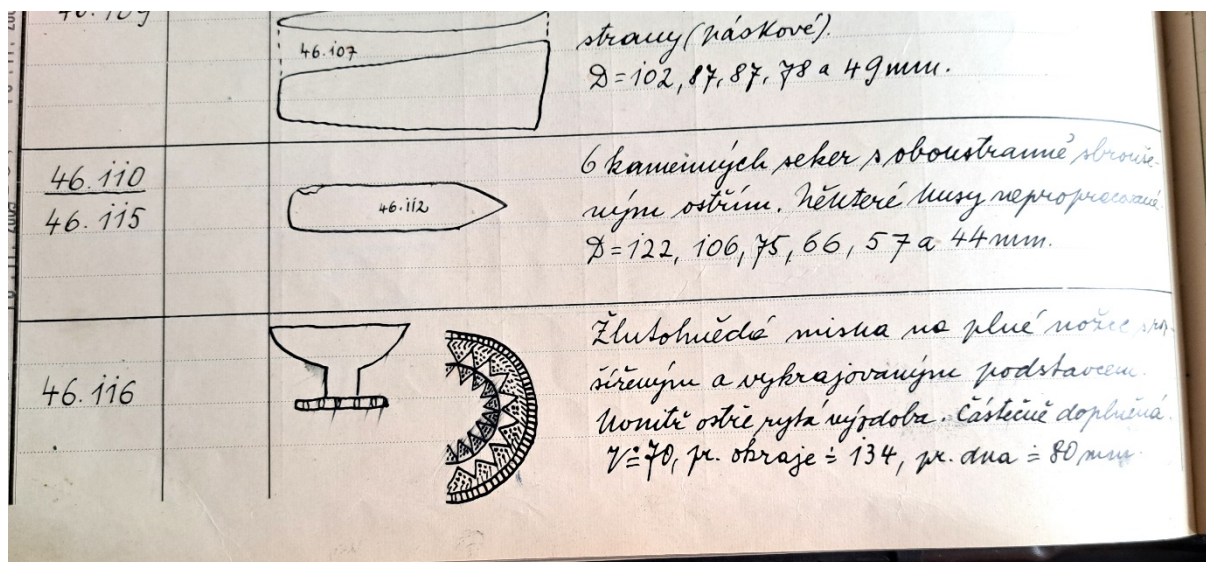 46.109
46.107
strany (páskové).
D=102, 87, 87, 78 a 49mm.
46.110
46.115
46.112
6 kamenných seker s oboustranně sbrouše-
ným ostřím. Některé kusy nepropracované
D=122, 106, 75, 66, 57 a 44mm.
46.116
Žlutohnědá miska na plné nožce s roz-
šířeným a vykrajovaným podstavcem.
Uvnitř ostře rytá výzdoba. Částečně doplněná.
V≐70, pr. okraje ≐ 134, pr. dna ≐ 80 mm.